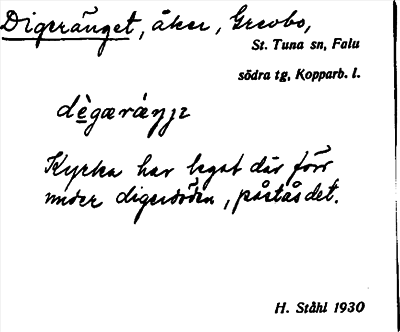 Digeränget, åker, Grevbo,
St. Tuna sn, Falu
södra tg, Kopparb. l.
dègæráŋŋı
Kyrka har legat där förr
under digerdöden, påstås det.
H. Ståhl 1930